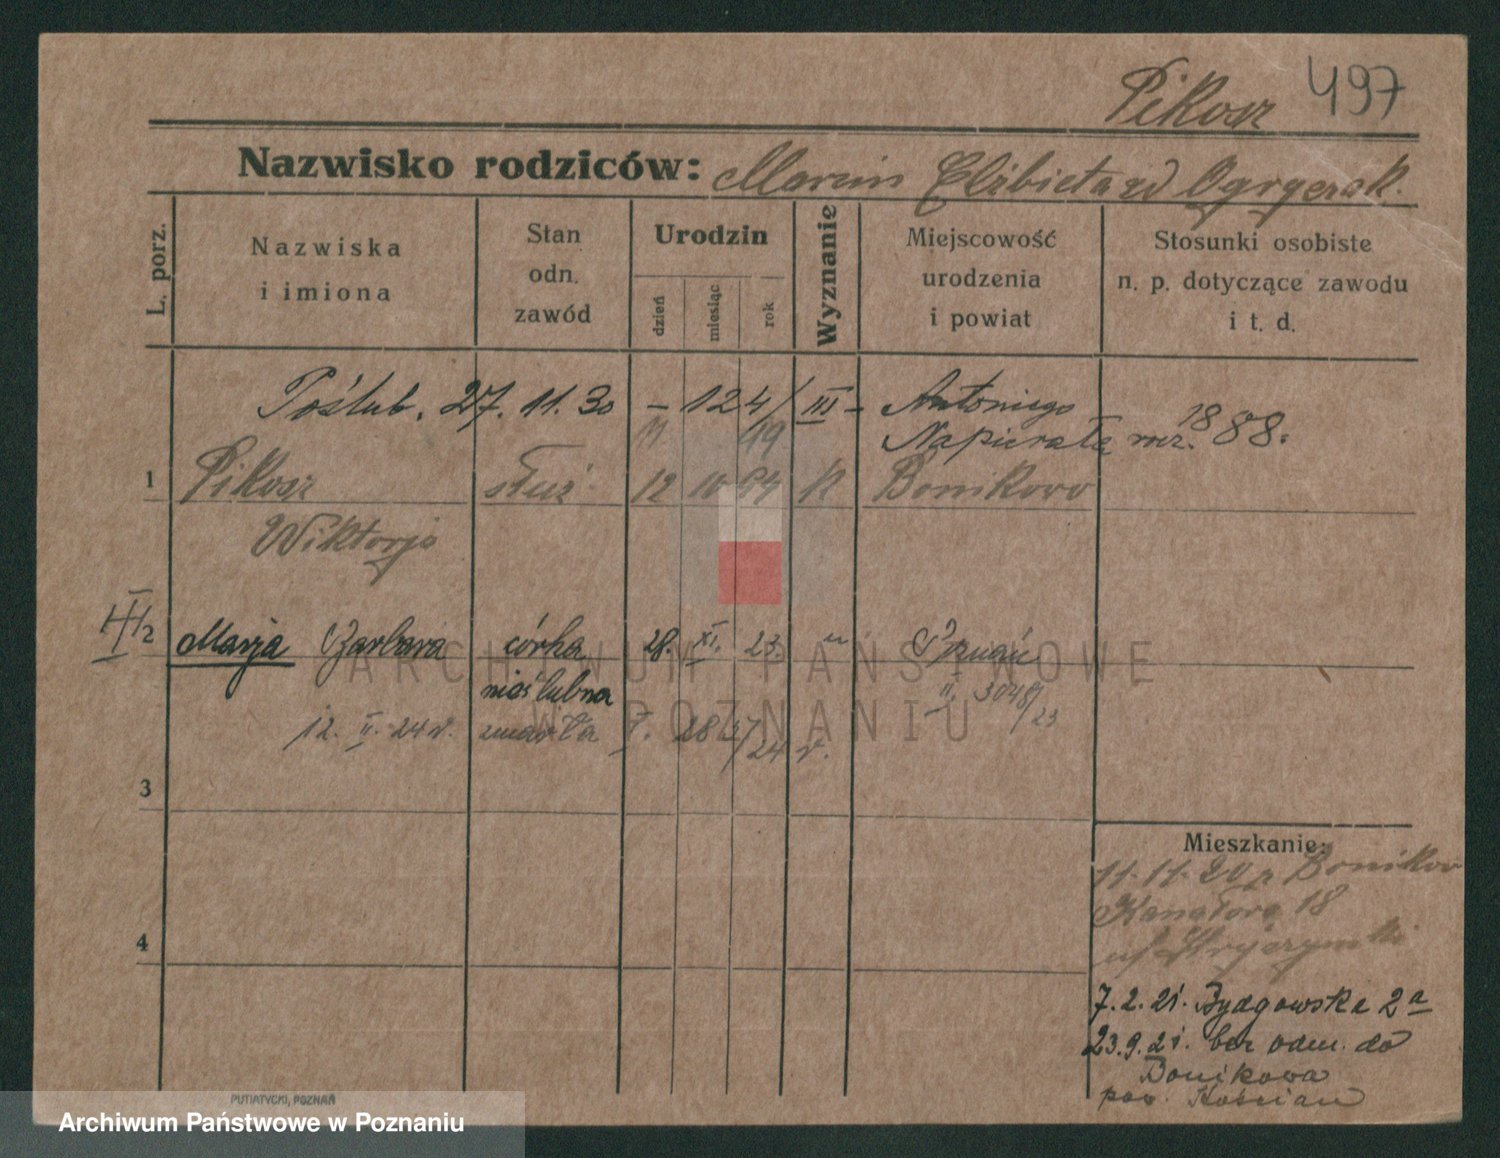 Pikosz 497
Nazwisko rodziców: Marcin Elżbieta zd Ogryczak.
L. porz.
Nazwiska i imiona
Stan odn. zawód
Urodzin
dzień
miesiąc
rok
Wyznanie
Miejscowość urodzenia i powiat
Stosunki osobiste n. p. dotyczące zawodu i t. d.
Poślub. 27. 11. 30 – 124/III – Antoniego
Napierała 1888.
11 99
1 Pikosz służ. 12 10 K Bonikowo
Wiktorja
III/2 Marja Barbara córka 28. XI. 23. " Poznań
nieślubna II. 3048/23
12. II. 24 r. zmarła 28 24 r.
3
4
Mieszkanie:
11.11.20 z Bonikow
Kanałowa 18
u/
7.2.21. Bydgowska 2a
23.9.21. bez odm. do
Bonikowa
pow. Kościan
PUTIATYCKI, POZNAŃ
ARCHIWUM PAŃSTWOWE
W POZNANIU
Archiwum Państwowe w Poznaniu